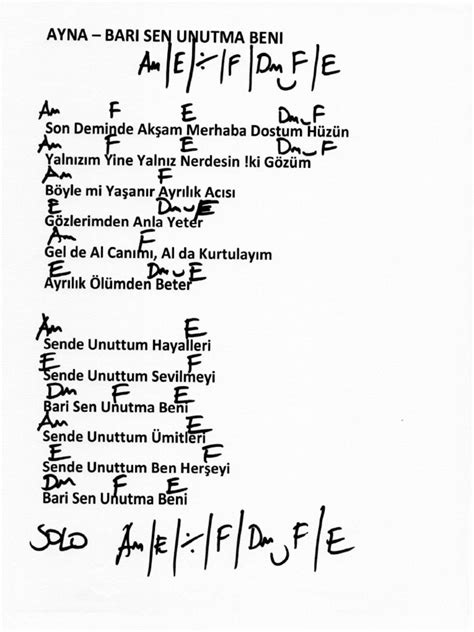 AYNA – BARI SEN UNUTMA BENI
Am | E | ÷ | F | Dm F | E
Am F E Dm F
Son Deminde Akşam Merhaba Dostum Hüzün
Am F E Dm F
Yalnızım Yine Yalnız Nerdesin !ki Gözüm
Am F
Böyle mi Yaşanır Ayrılık Acısı
E Dm E
Gözlerimden Anla Yeter
Am F
Gel de Al Canımı, Al da Kurtulayım
E Dm E
Ayrılık Ölümden Beter
Am E
Sende Unuttum Hayalleri
E F
Sende Unuttum Sevilmeyi
Dm F E
Bari Sen Unutma Beni
Am E
Sende Unuttum Ümitleri
E F
Sende Unuttum Ben Herşeyi
Dm F E
Bari Sen Unutma Beni
SOLO Am | E | ÷ | F | Dm F | E